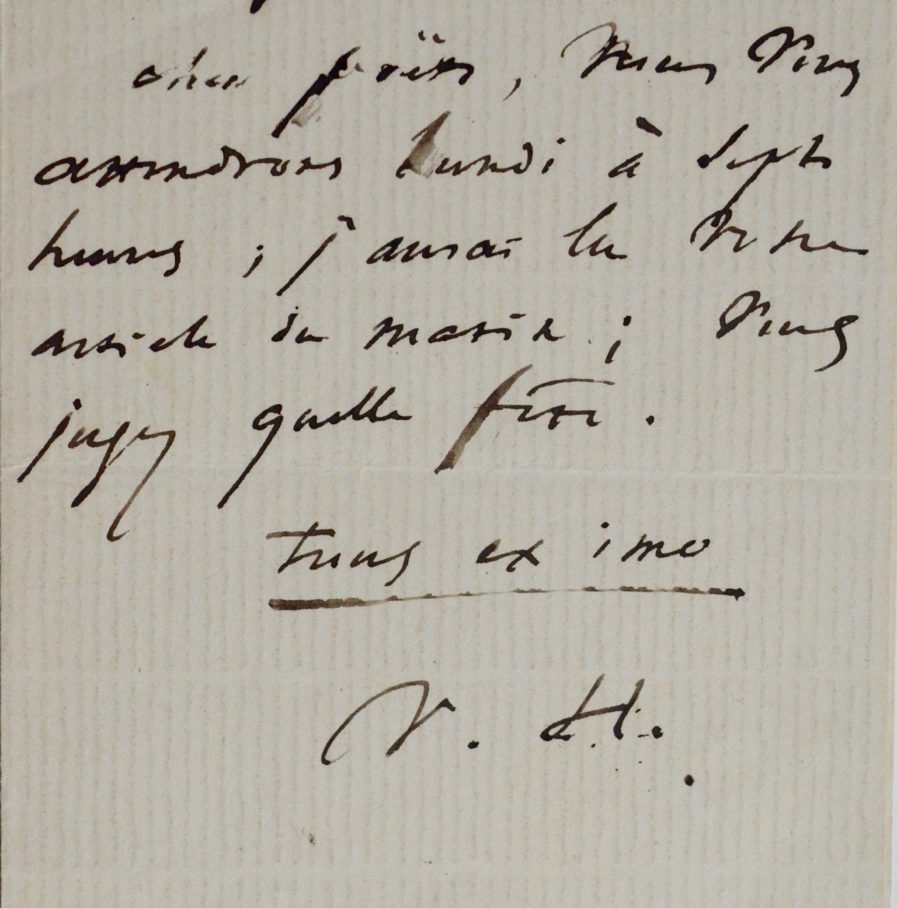 cher poëte, nous vous
attendrons lundi à sept
heures ; j'aurai lu votre
article du matin ; vous
jugez quelle fête.
tuus ex imo
V. H.